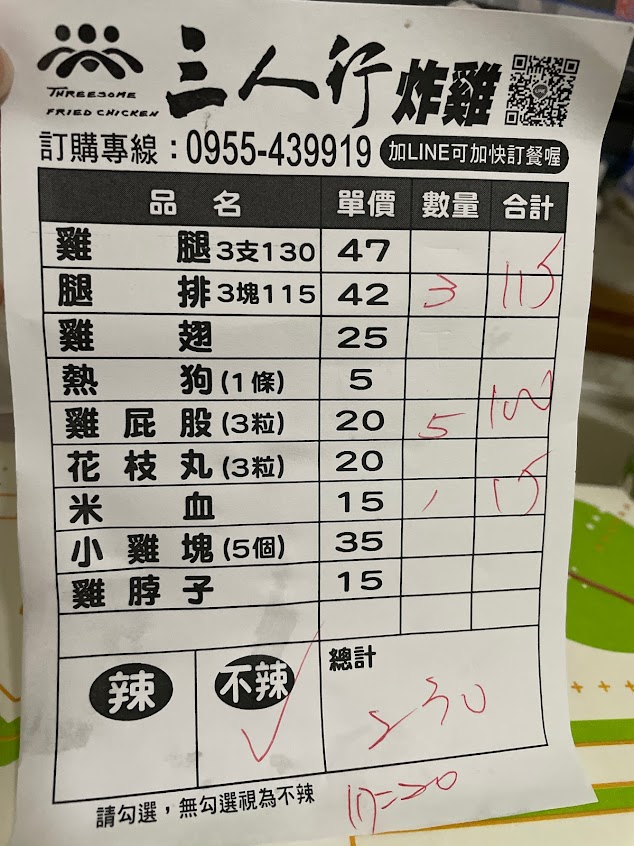 三人行炸雞
THREESOME
FRIED CHICKEN
LINE
訂購專線：0955-439919 加LINE可加快訂餐喔
品名 單價 數量 合計
雞腿3支130 47
腿排3塊115 42 3 115
雞翅 25
熱狗(1條) 5
雞屁股(3粒) 20 5 100
花枝丸(3粒) 20
米血 15 1 15
小雞塊(5個) 35
雞脖子 15
辣 不辣 總計
230
請勾選，無勾選視為不辣